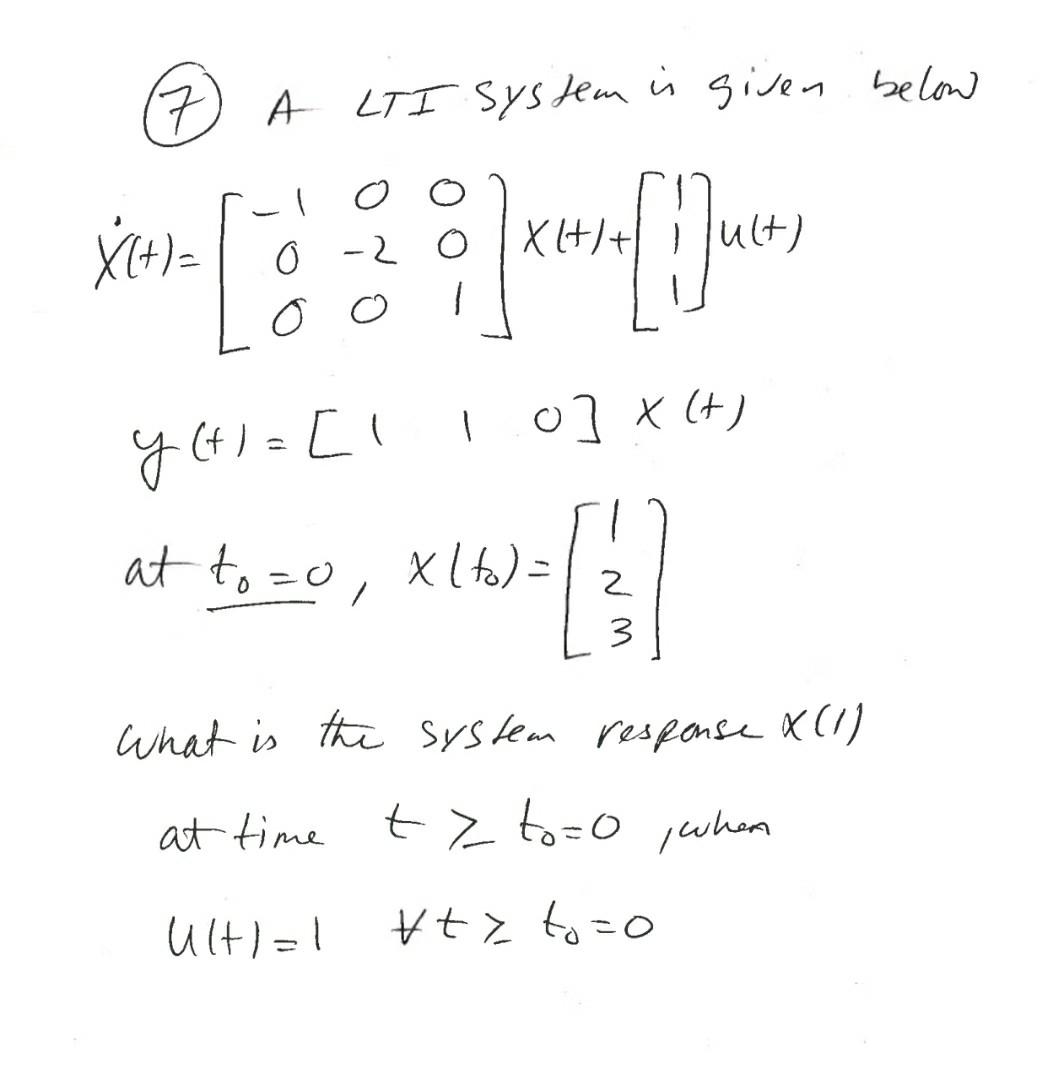 ⑦ A LTI system is given below
ẋ(t)= [-1 0 0; 0 -2 0; 0 0 1] x(t)+ [1; 1; 1] u(t)
y(t)= [1 1 0] x(t)
at t₀=0, x(t₀)= [1; 2; 3]
what is the system response x(1)
at time t ≥ t₀=0 , when
u(t)=1 ∀t≥ t₀=0